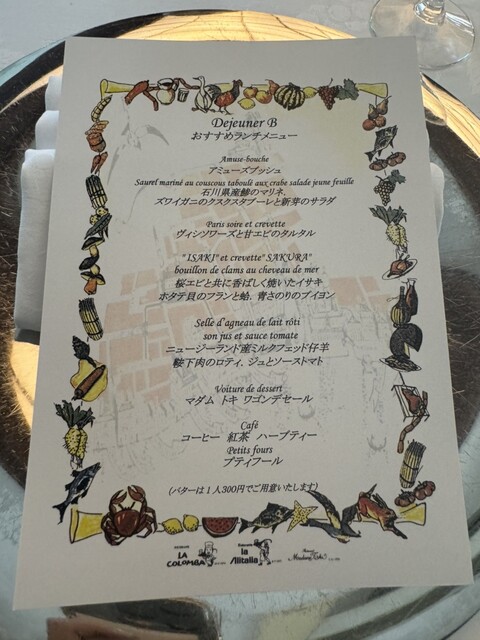 Dejeuner B
おすすめランチメニュー
Amuse-bouche
アミューズブッシュ
Saurel mariné au couscous taboulé aux crabe salade jeune feuille
石川県産鯵のマリネ、
ズワイガニのクスクスタブーレと新芽のサラダ
Paris soire et crevette
ヴィシソワーズと甘エビのタルタル
"ISAKI" et crevette "SAKURA"
bouillon de clams au cheveau de mer
桜エビと共に香ばしく焼いたイサキ
ホタテ貝のフランと蛤、青さのりのブイヨン
Selle d'agneau de lait rôti
son jus et sauce tomate
ニュージーランド産ミルクフェッド仔羊
鞍下肉のロティ、ジュとソーストマト
Voiture de dessert
マダム トキ ワゴンデセール
Café
コーヒー 紅茶 ハーブティー
Petits fours
プティフール
(バターは1人300円でご用意いたします)
LA COLOMBA
la Alitalia
Madame Toki